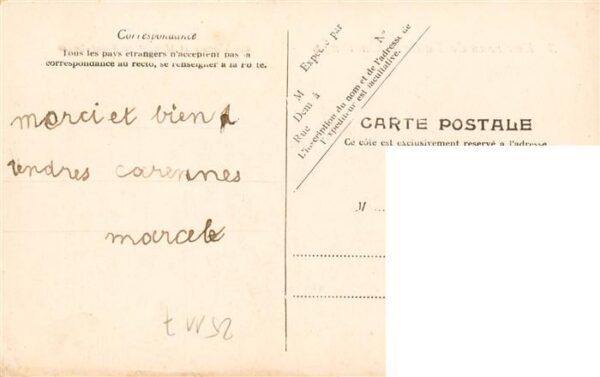 Correspondance
Tous les pays étrangers n'acceptent pas la
correspondance au recto, se renseigner à la Poste.
morci et bien
tendres carennes
marcele
Expédié par
M
N°
Dem à
Rue
L'Inscription du nom et de l'adresse de
l'Expéditeur est facultative.
CARTE POSTALE
Ce côté est exclusivement réservé à l'adresse
M